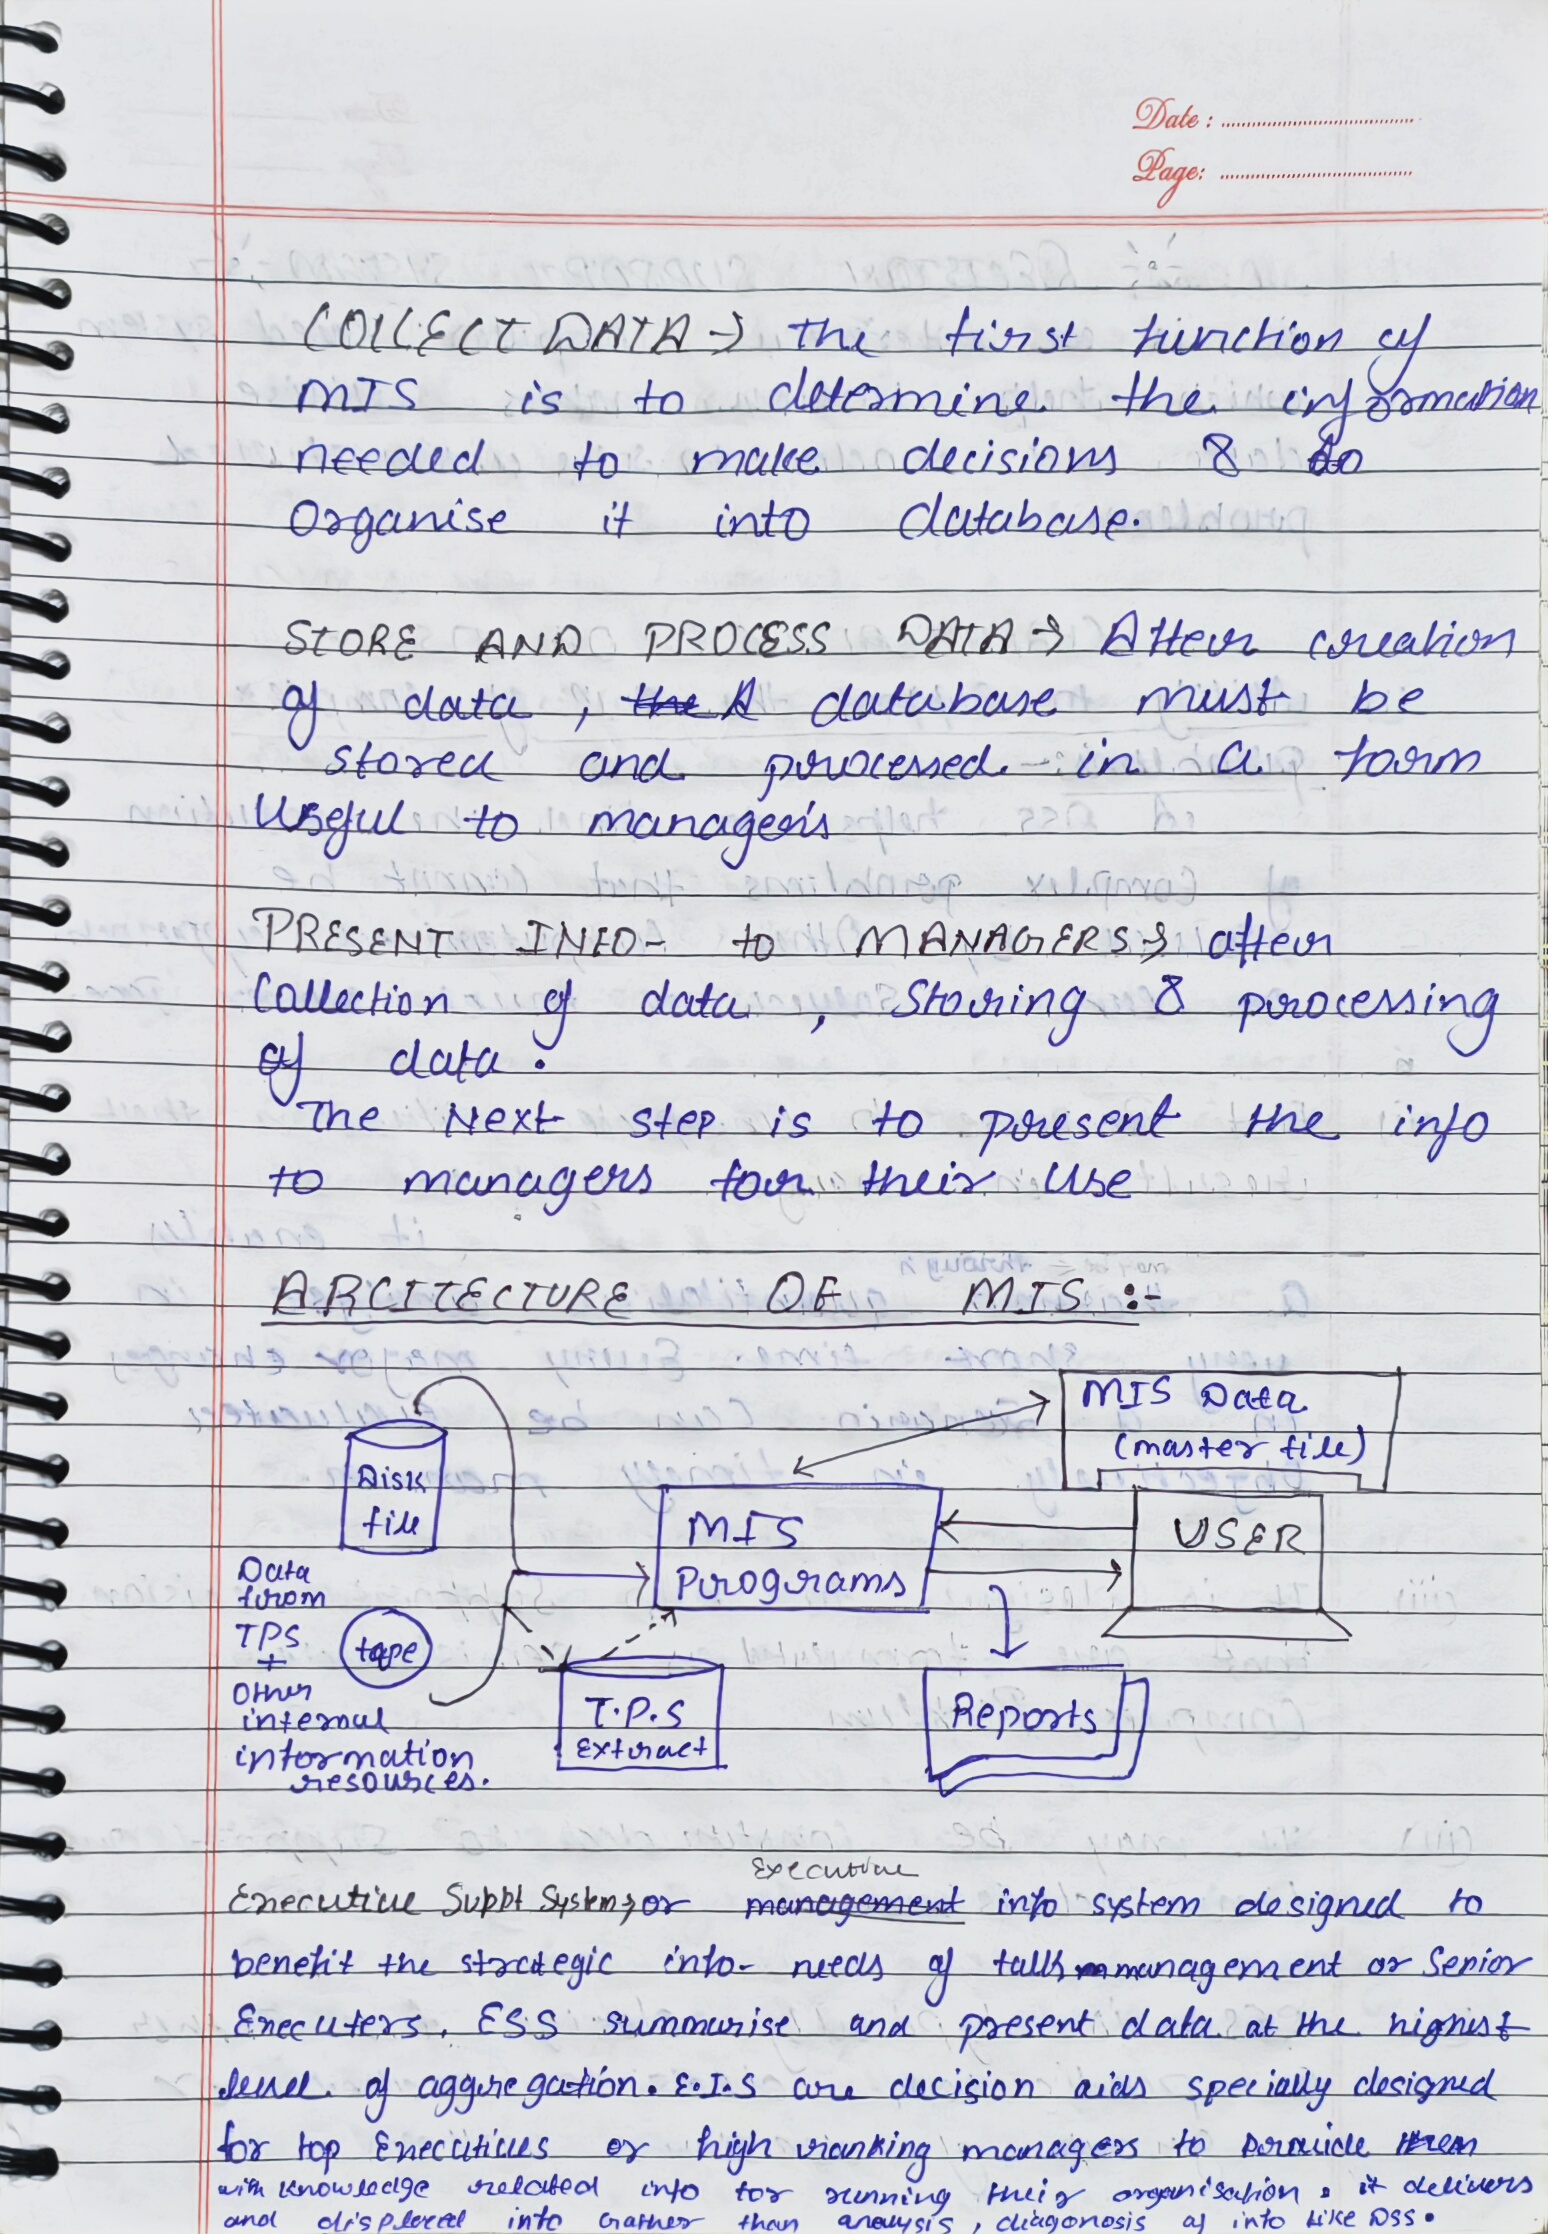 Date :
Page:
COLLECT DATA → The first function of
MIS is to determine the information
needed to make decisions & to
Organise it into database.
STORE AND PROCESS DATA → After creation
of data, the A database must be
stored and processed in a form
Useful to managers
PRESENT INFO- to MANAGERS → after
Collection of data, Storing & processing
of data.
The Next step is to present the info
to managers for their Use
ARCITECTURE OF MIS :-
MIS Data
(master file)
Disk
file
MIS
Programs
USER
Data
from
TPS
+
Other
internal
information
resources.
tape
T.P.S
Extract
Reports
Executive
Executive Suppt System, or management info system designed to
benefit the strategic info- needs of management or Senior
Executers. ESS summarise and present data at the highest
level of aggregation. E.I.S are decision aids specially designed
for top Executives or high ranking managers to provide them
with knowledge related info for running their organisation. it delivers
and displaced info rather than analysis, diagonosis of info like DSS.